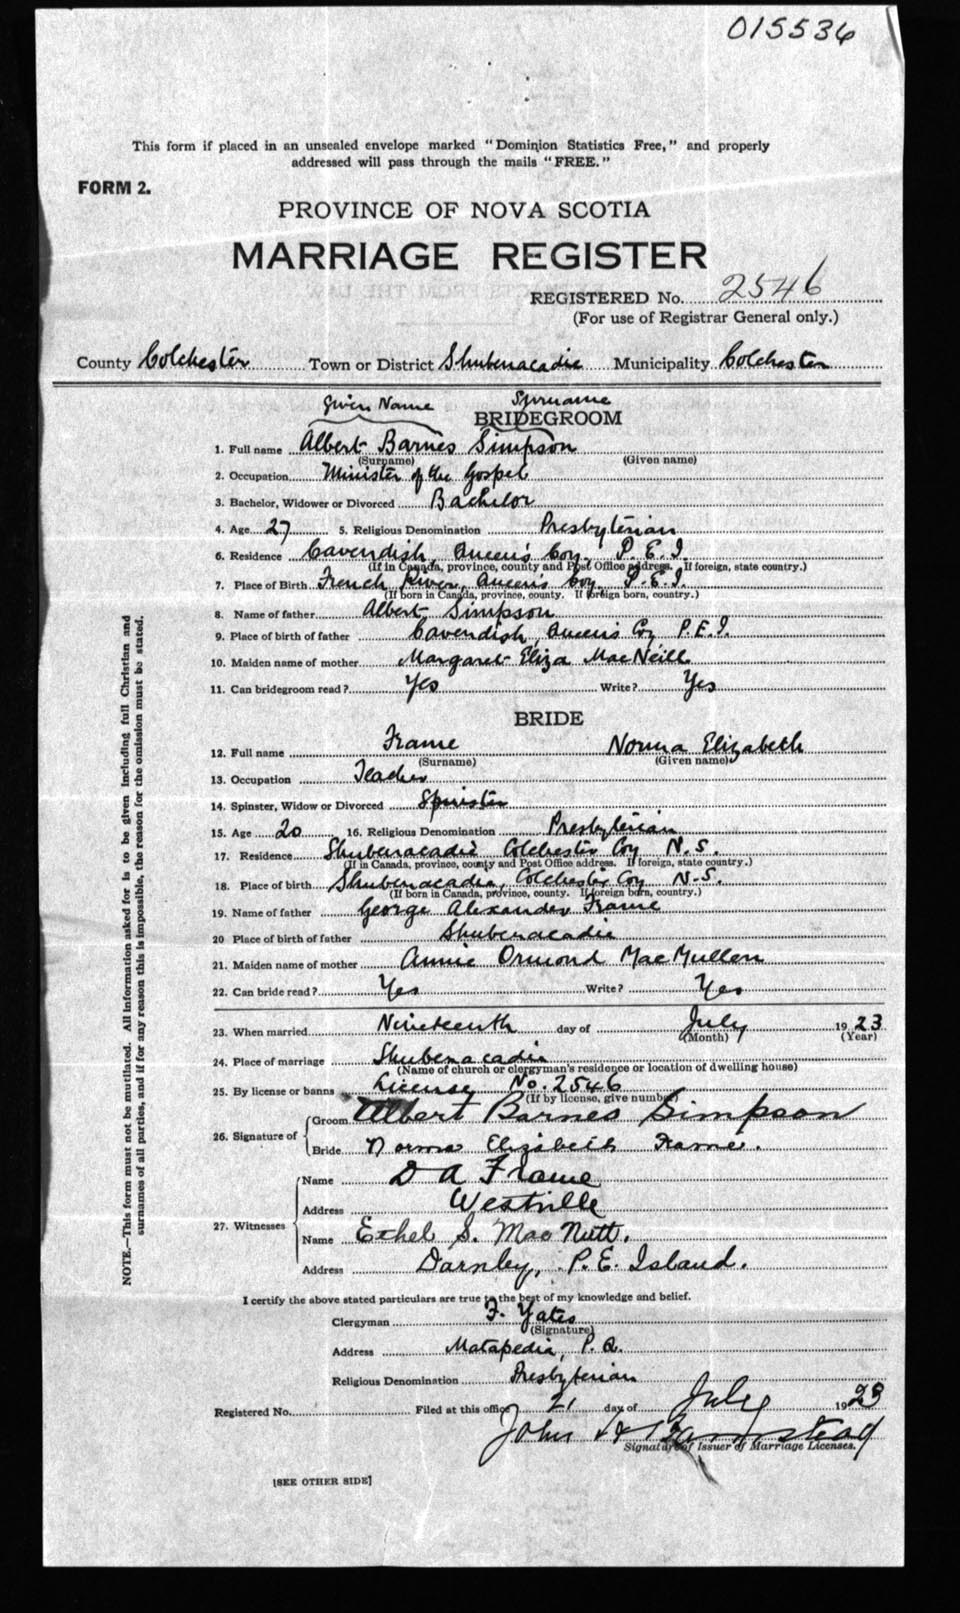 015536
This form if placed in an unsealed envelope marked "Dominion Statistics Free," and properly
addressed will pass through the mails "FREE."
FORM 2.
PROVINCE OF NOVA SCOTIA
MARRIAGE REGISTER
REGISTERED No. 2546
(For use of Registrar General only.)
County Colchester Town or District Shubenacadie Municipality Colchester
Given Name Surname
BRIDEGROOM
1. Full name Albert Barnes Simpson
(Surname) (Given name)
2. Occupation Minister of the Gospel
3. Bachelor, Widower or Divorced Bachelor
4. Age 27 5. Religious Denomination Presbyterian
6. Residence Cavendish, Queen's Coy. P.E.I.
(If in Canada, province, county and Post Office address. If foreign, state country.)
7. Place of Birth French River, Queen's Coy. P.E.I.
(If born in Canada, province, county. If foreign born, country.)
8. Name of father Albert Simpson
9. Place of birth of father Cavendish, Queen's Coy P.E.I.
10. Maiden name of mother Margaret Eliza MacNeill
11. Can bridegroom read? Yes Write? Yes
BRIDE
12. Full name Frame Norma Elizabeth
(Surname) (Given name)
13. Occupation Teacher
14. Spinster, Widow or Divorced Spinster
15. Age 20 16. Religious Denomination Presbyterian
17. Residence Shubenacadie Colchester Coy N.S.
(If in Canada, province, county and Post Office address. If foreign, state country.)
18. Place of birth Shubenacadie, Colchester Coy N.S.
(If born in Canada, province, county. If foreign born, country.)
19. Name of father George Alexander Frame
20 Place of birth of father Shubenacadie
21. Maiden name of mother Annie Ormond MacMullen
22. Can bride read? Yes Write? Yes
23. When married Nineteenth day of July 1923
(Month) (Year)
24. Place of marriage Shubenacadie
(Name of church or clergyman's residence or location of dwelling house)
25. By license or banns License No. 2546
(If by license, give number)
26. Signature of
Groom Albert Barnes Simpson
Bride Norma Elizabeth Frame.
27. Witnesses
Name D A Frame
Address Westville
Name Ethel S. MacNutt.
Address Darnley, P.E. Island.
I certify the above stated particulars are true to the best of my knowledge and belief.
Clergyman F. Yates
(Signature)
Address Matapedia, P.Q.
Religious Denomination Presbyterian
Registered No. Filed at this office 21 day of July 1923
John
Signature of Issuer of Marriage Licenses.
[SEE OTHER SIDE]
NOTE.—This form must not be mutilated. All information asked for is to be given including full Christian and
surnames of all parties, and if for any reason this is impossible, the reason for the omission must be stated.